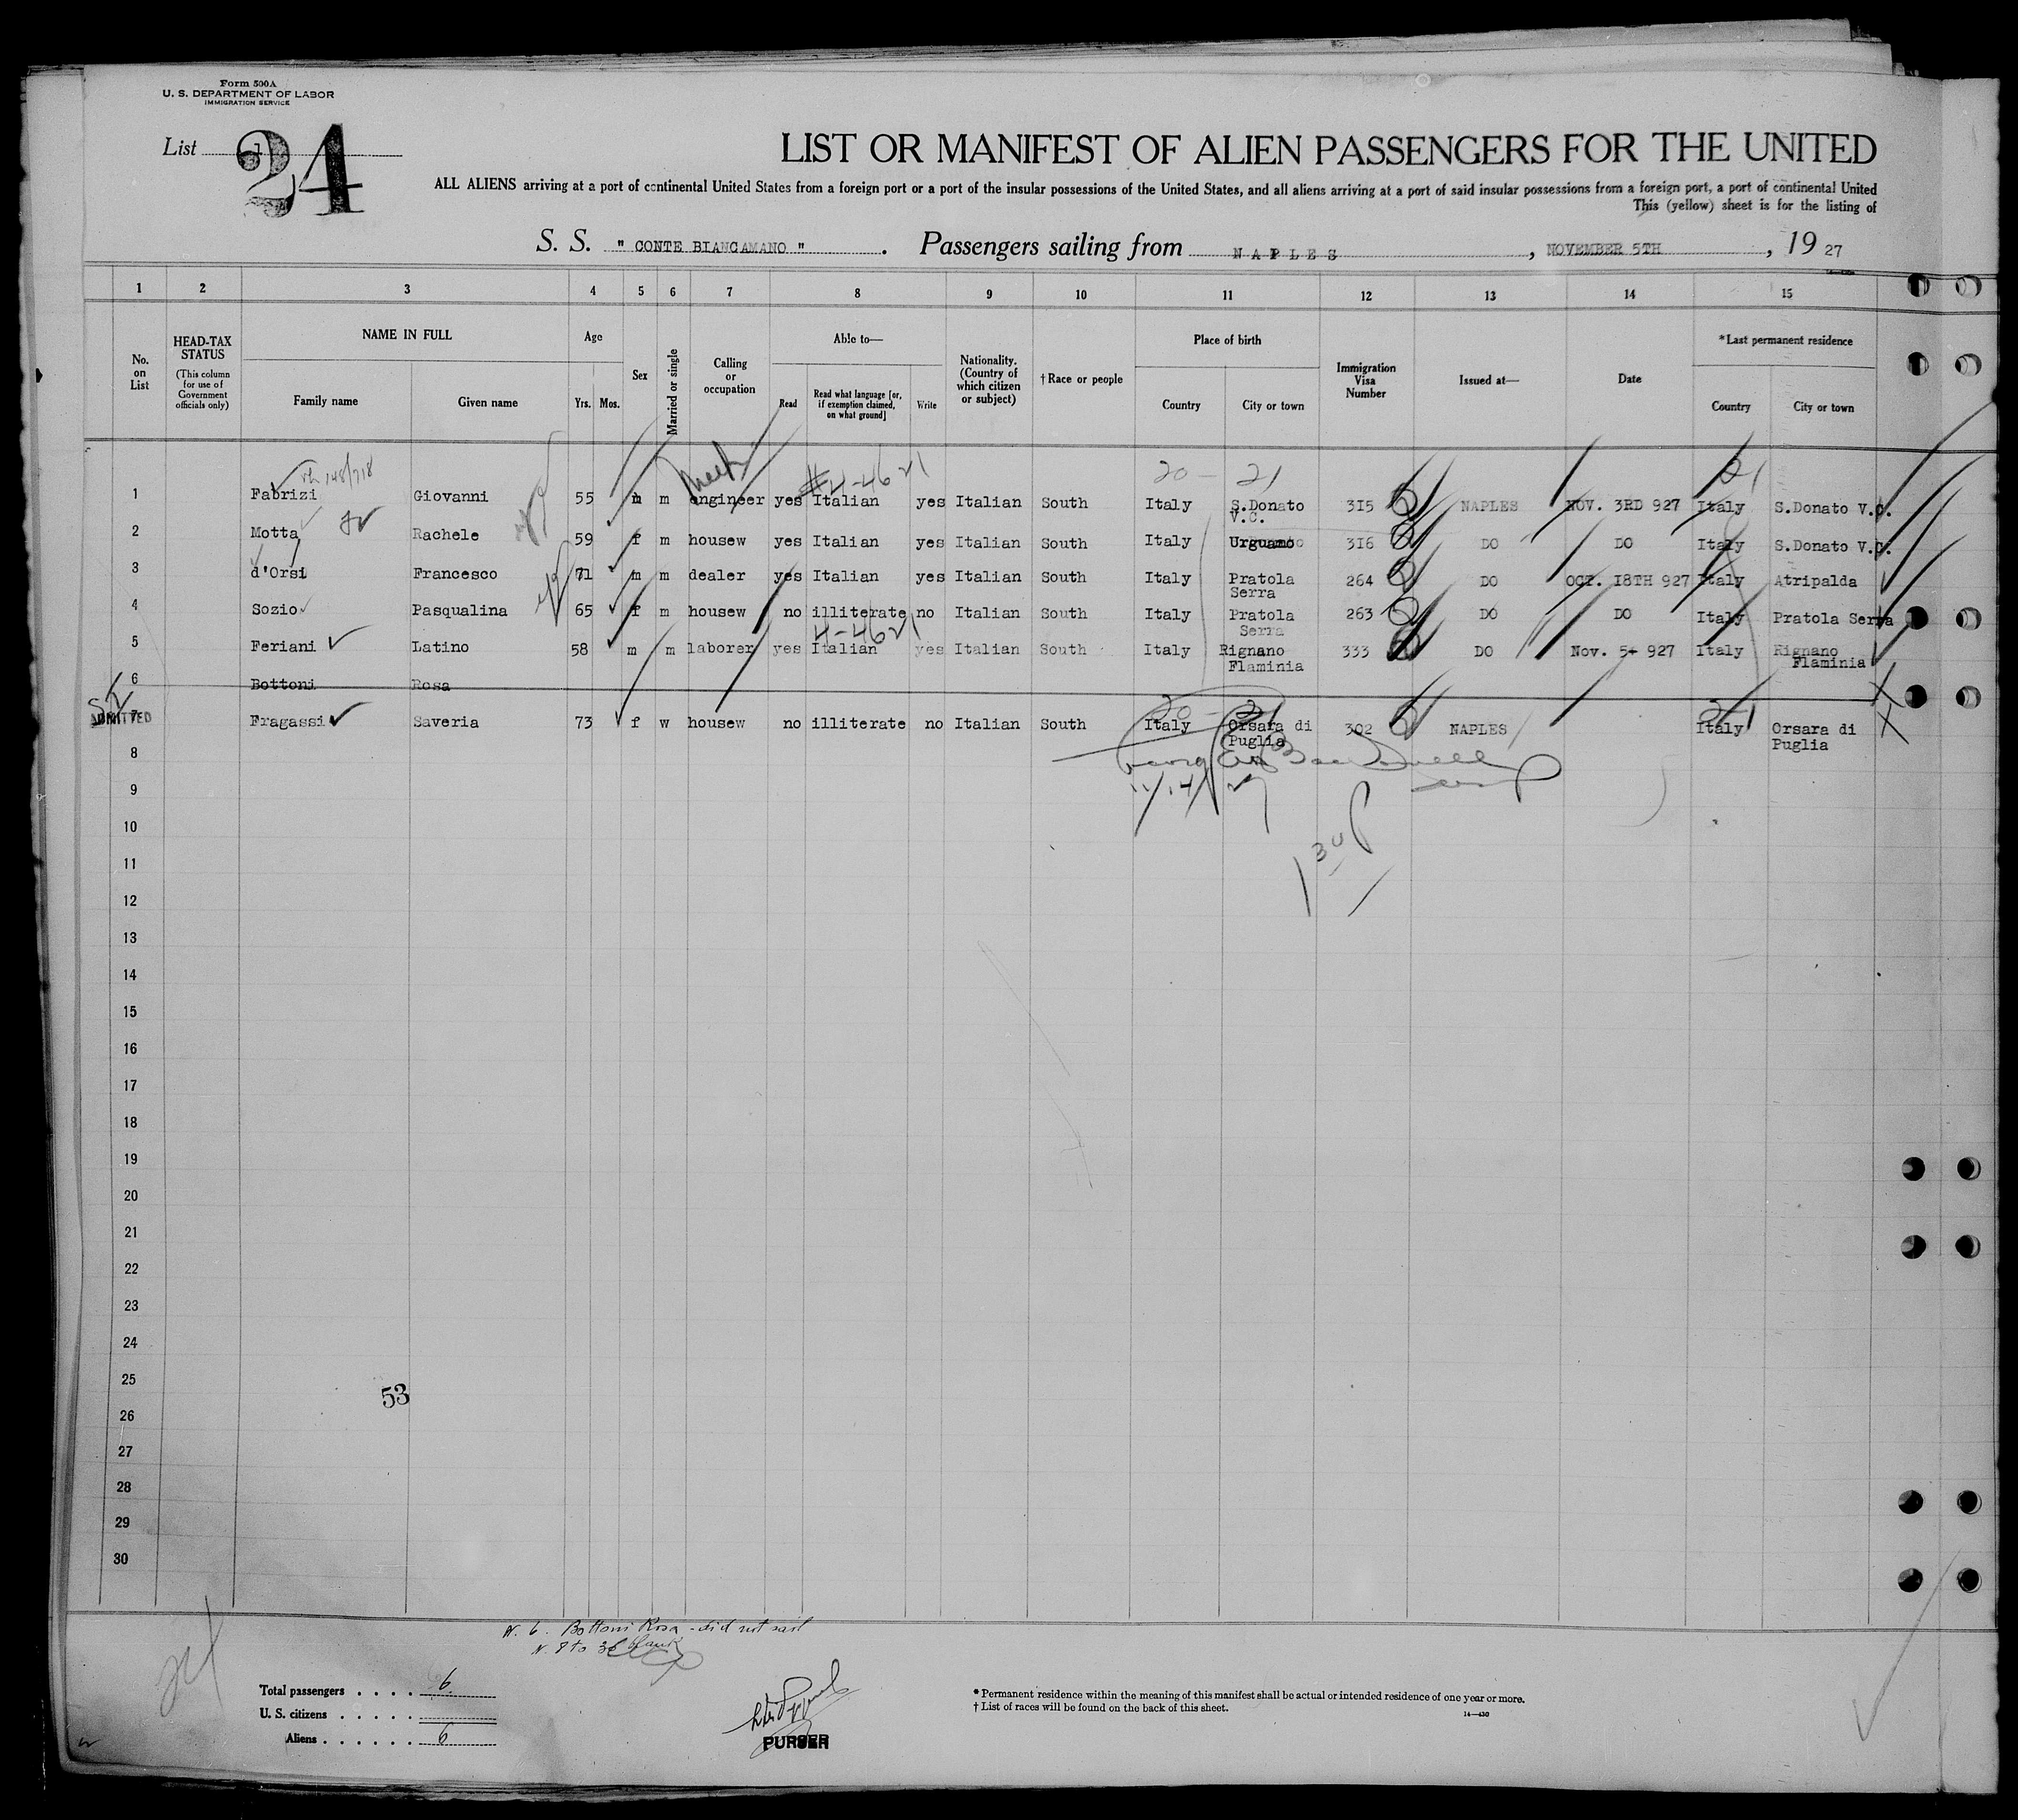 Form 500A
U. S. DEPARTMENT OF LABOR
IMMIGRATION SERVICE
List 1
24
LIST OR MANIFEST OF ALIEN PASSENGERS FOR THE UNITED
ALL ALIENS arriving at a port of continental United States from a foreign port or a port of the insular possessions of the United States, and all aliens arriving at a port of said insular possessions from a foreign port, a port of continental United
This (yellow) sheet is for the listing of
S. S. " CONTE BIANCAMANO ". Passengers sailing from NAPLES, NOVEMBER 5TH, 19 27
1 2 3 4 5 6 7 8 9 10 11 12 13 14 15
No. on List
HEAD-TAX STATUS
(This column for use of Government officials only)
NAME IN FULL
Family name Given name
Age
Yrs. Mos.
Sex
Married or single
Calling or occupation
Able to—
Read
Read what language [or, if exemption claimed, on what ground]
Write
Nationality. (Country of which citizen or subject)
†Race or people
Place of birth
Country City or town
Immigration Visa Number
Issued at—
Date
*Last permanent residence
Country City or town
148/718 #4-4621 20 - 21 21
1 Fabrizi Giovanni 55 m m engineer yes Italian yes Italian South Italy S.Donato V.C. 315 NAPLES NOV. 3RD 927 Italy S.Donato V.C.
2 Motta Rachele 59 f m housew yes Italian yes Italian South Italy 316 DO DO Italy S.Donato V.C.
3 d'Orsi Francesco 71 m m dealer yes Italian yes Italian South Italy Pratola Serra 264 DO OCT. 18TH 927 Italy Atripalda
4 Sozio Pasqualina 65 f m housew no illiterate no Italian South Italy Pratola Serra 263 DO DO Italy Pratola Serra
4-4621
5 Feriani Latino 58 m m laborer yes Italian yes Italian South Italy Rignano Flaminia 333 DO Nov. 5 927 Italy Rignano Flaminia
6 Bottoni Rosa
ADMITTED
20 - 21
7 Fragassi Saveria 73 f w housew no illiterate no Italian South Italy Orsara di Puglia 302 NAPLES Italy Orsara di Puglia
8
11/14/27
9
10
11
12
13
14
15
16
17
18
19
20
21
22
23
24
25
53
26
27
28
29
30
N. 6. Bottoni Rosa - did not sail
N. 8 to 30 blank
Total passengers . . . . 6
U. S. citizens . . . . .
Aliens . . . . . . 6
PURSER
* Permanent residence within the meaning of this manifest shall be actual or intended residence of one year or more.
† List of races will be found on the back of this sheet.
14—430